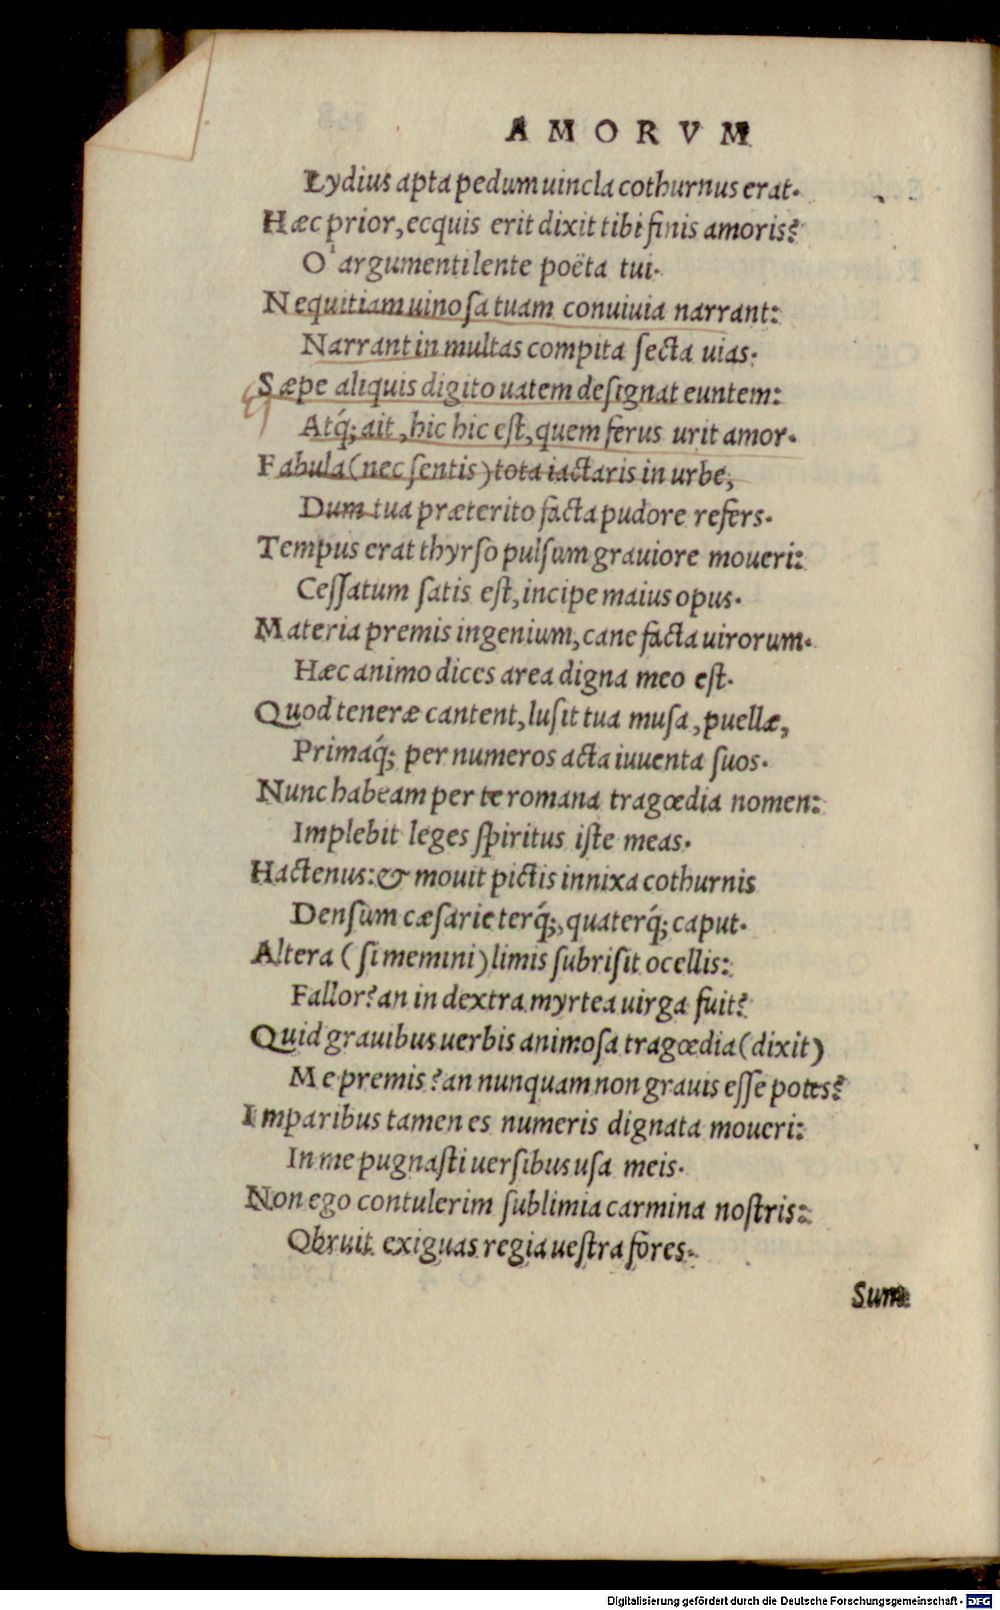 AMORVM
Lydius apta pedum uincla cothurnus erat.
Hæc prior, ecquis erit dixit tibi finis amoris?
O' argumenti lente poëta tui.
Nequitiam uinosa tuam conuiuia narrant:
Narrant in multas compita secta uias.
Sæpe aliquis digito uatem designat euntem:
Atq́; ait, hic hic est, quem ferus urit amor.
Fabula (nec sentis) tota iactaris in urbe,
Dum tua præterito facta pudore refers.
Tempus erat thyrso pulsum grauiore moueri:
Cessatum satis est, incipe maius opus.
Materia premis ingenium, cane facta uirorum.
Hæc animo dices area digna meo est.
Quod teneræ cantent, lusit tua musa, puellæ,
Primaq́; per numeros acta iuuenta suos.
Nunc habeam per te romana tragœdia nomen:
Implebit leges spiritus iste meas.
Hactenus: & mouit pictis innixa cothurnis
Densum cæsarie terq́;, quaterq́; caput.
Altera (si memini) limis subrisit ocellis:
Fallor? an in dextra myrtea uirga fuit?
Quid grauibus uerbis animosa tragœdia (dixit)
Me premis? an nunquam non grauis esse potes?
Imparibus tamen es numeris dignata moueri:
In me pugnasti uersibus usa meis.
Non ego contulerim sublimia carmina nostris:
Obruit exiguas regia uestra fores.
Sum
Digitalisierung gefördert durch die Deutsche Forschungsgemeinschaft - DFG